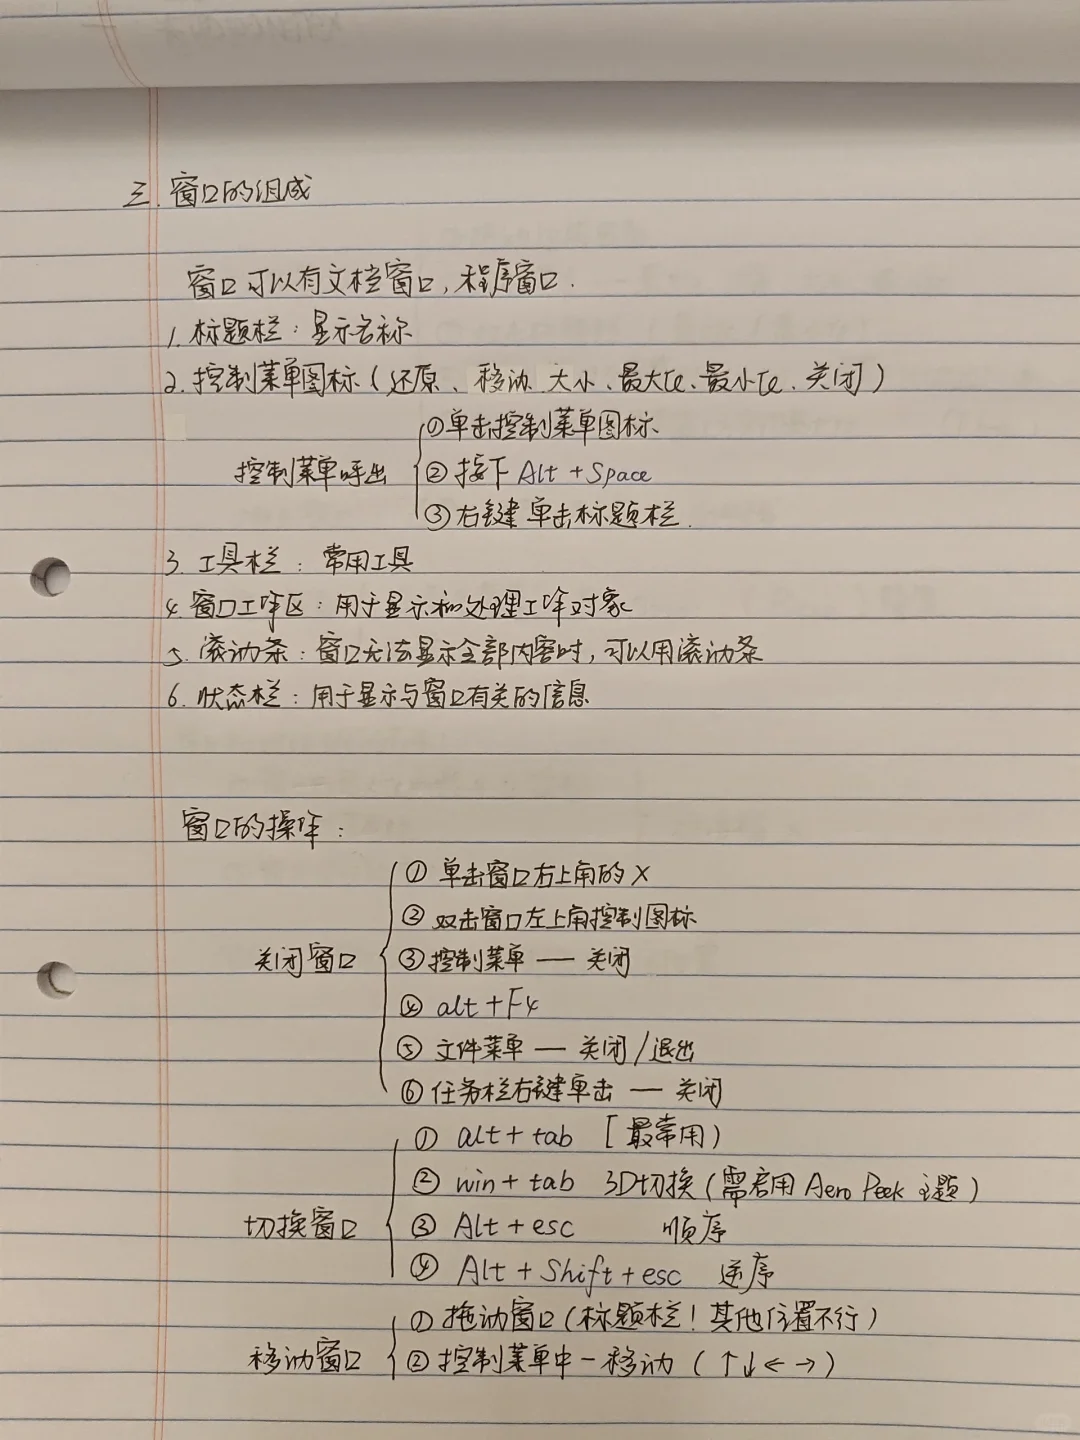 三. 窗口的组成
窗口可以有文档窗口,程序窗口.
1. 标题栏:显示名称
2. 控制菜单图标(还原、移动、大小、最大化、最小化、关闭)
①单击控制菜单图标
控制菜单呼出 ②按下 Alt + Space
③右键单击标题栏.
3. 工具栏:常用工具
4. 窗口工作区:用于显示和处理工作对象
5. 滚动条:窗口无法显示全部内容时,可以用滚动条
6. 状态栏:用于显示与窗口有关的信息
窗口的操作:
① 单击窗口右上角的 X
② 双击窗口左上角控制图标
关闭窗口 ③控制菜单 — 关闭
④ alt + F4
⑤ 文件菜单 — 关闭/退出
⑥ 任务栏右键单击 — 关闭
① alt + tab [最常用)
② win + tab 3D切换(需启用 Aero Peek 主题)
切换窗口 ③ Alt + esc 顺序
④ Alt + Shift + esc 逆序
① 拖动窗口(标题栏!其他位置不行)
移动窗口 ② 控制菜单中-移动 (↑↓←→)